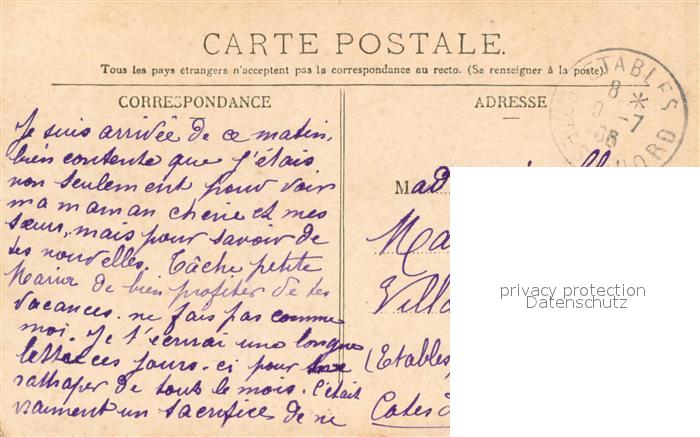 CARTE POSTALE.
Tous les pays étrangers n'acceptent pas la correspondance au recto. (Se renseigner à la poste).
CORRESPONDANCE
ADRESSE
ETABLES
8
9 - 7
08
NORD
Je suis arrivée de ce matin,
bien contente que j'étais
non seulement pour voir
ma maman chérie et mes
sœurs, mais pour savoir de
tes nouvelles. Tâche petite
Maria de bien profiter de tes
vacances. ne fais pas comme
moi. Je t'écrirai une longue
lettre ces jours-ci pour
rattraper de tout le mois. C'était
vraiment un sacrifice de ne
Mad
Ma
Villa
(Etables
Cotes d
privacy protection
Datenschutz